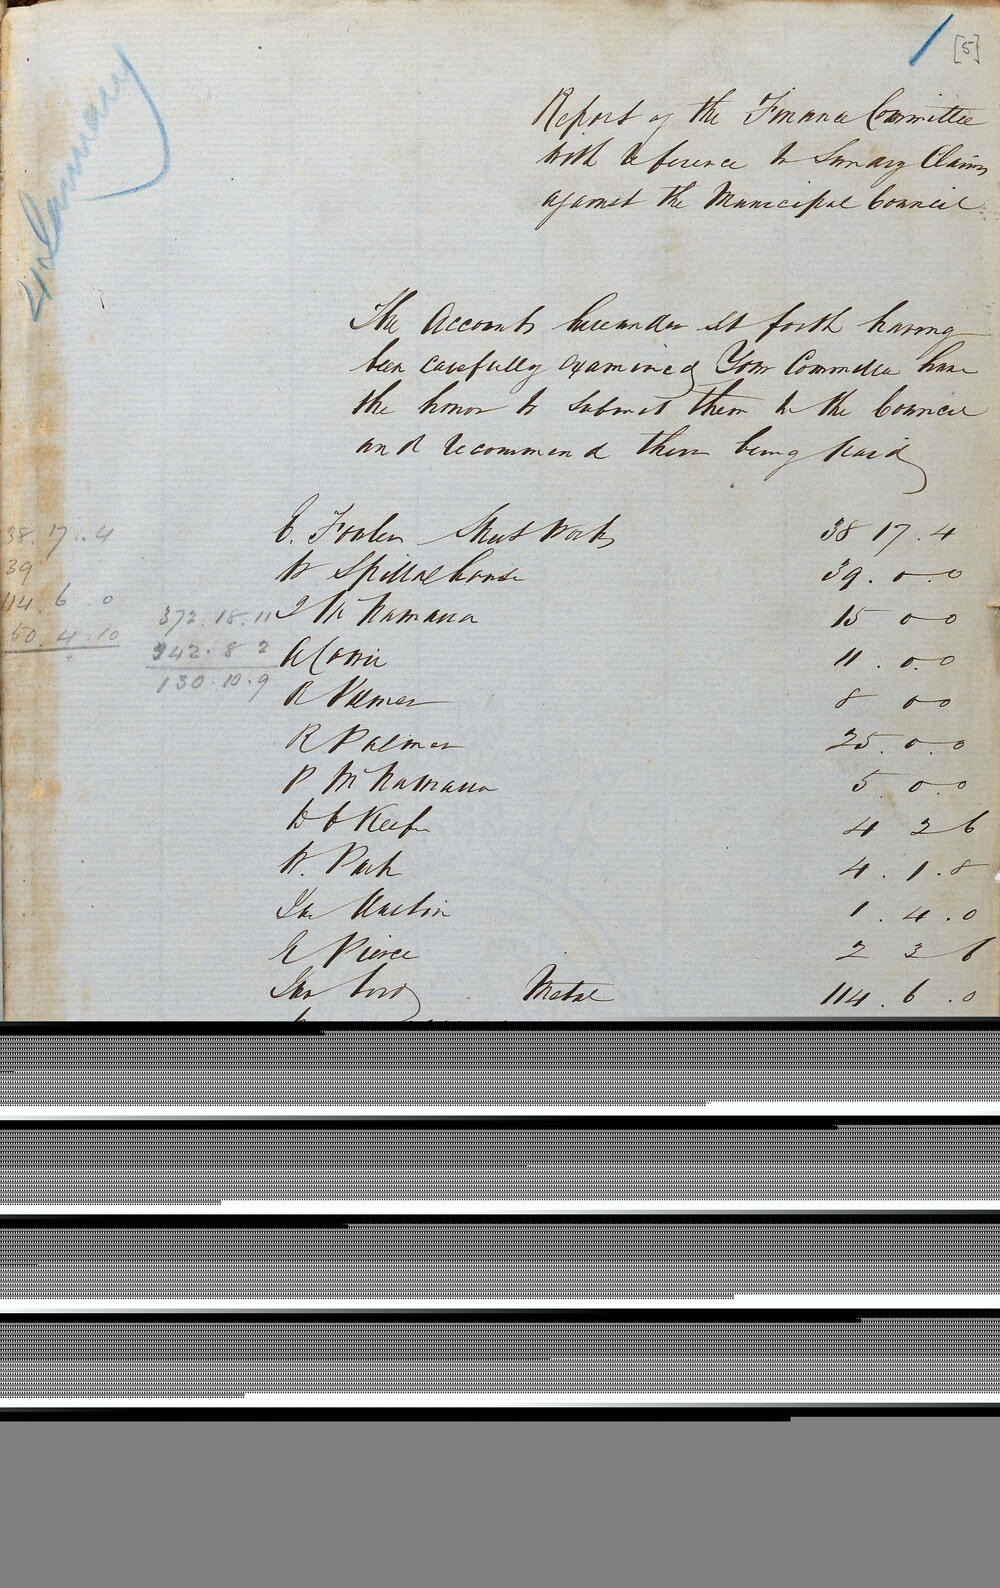 [5]
Report of the Finance Committee
with reference to Sundry Claims
against the Municipal Council
The Accounts hereunder set forth having
been carefully examined Your Committee have
the honor to submit them to the Council
and recommend them being paid
E. Fowler Street Works 38 17. 4
W Spillal house 39. 0. 0
Mc Namara 15 0 0
11. 0. 0
8 0 0
R Palmer 25. 0. 0
P McNamara 5. 0. 0
O Keefe 4 2 6
W. Park 4. 1. 8
Jas Martin 1. 4. 0
E Pierce 2 3 6
Jas Metal 114. 6. 0
38. 17.. 4
39
114. 6. 0
50. 4. 10
372. 18. 11
242. 8 2
130. 10. 9